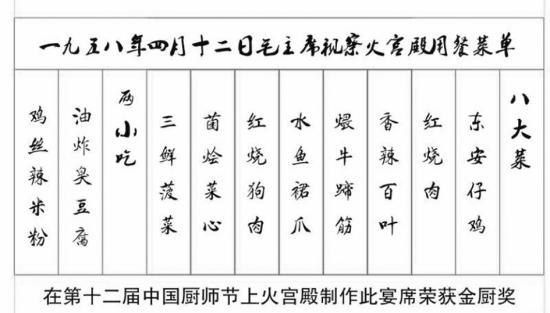 一九五八年四月十二日毛主席视察火宫殿用餐菜单
八大菜
东安仔鸡
红烧肉
香辣百叶
煨牛蹄筋
水鱼裙爪
红烧狗肉
菌烩菜心
三鲜菠菜
两小吃
油炸臭豆腐
鸡丝辣米粉
在第十二届中国厨师节上火宫殿制作此宴席荣获金厨奖